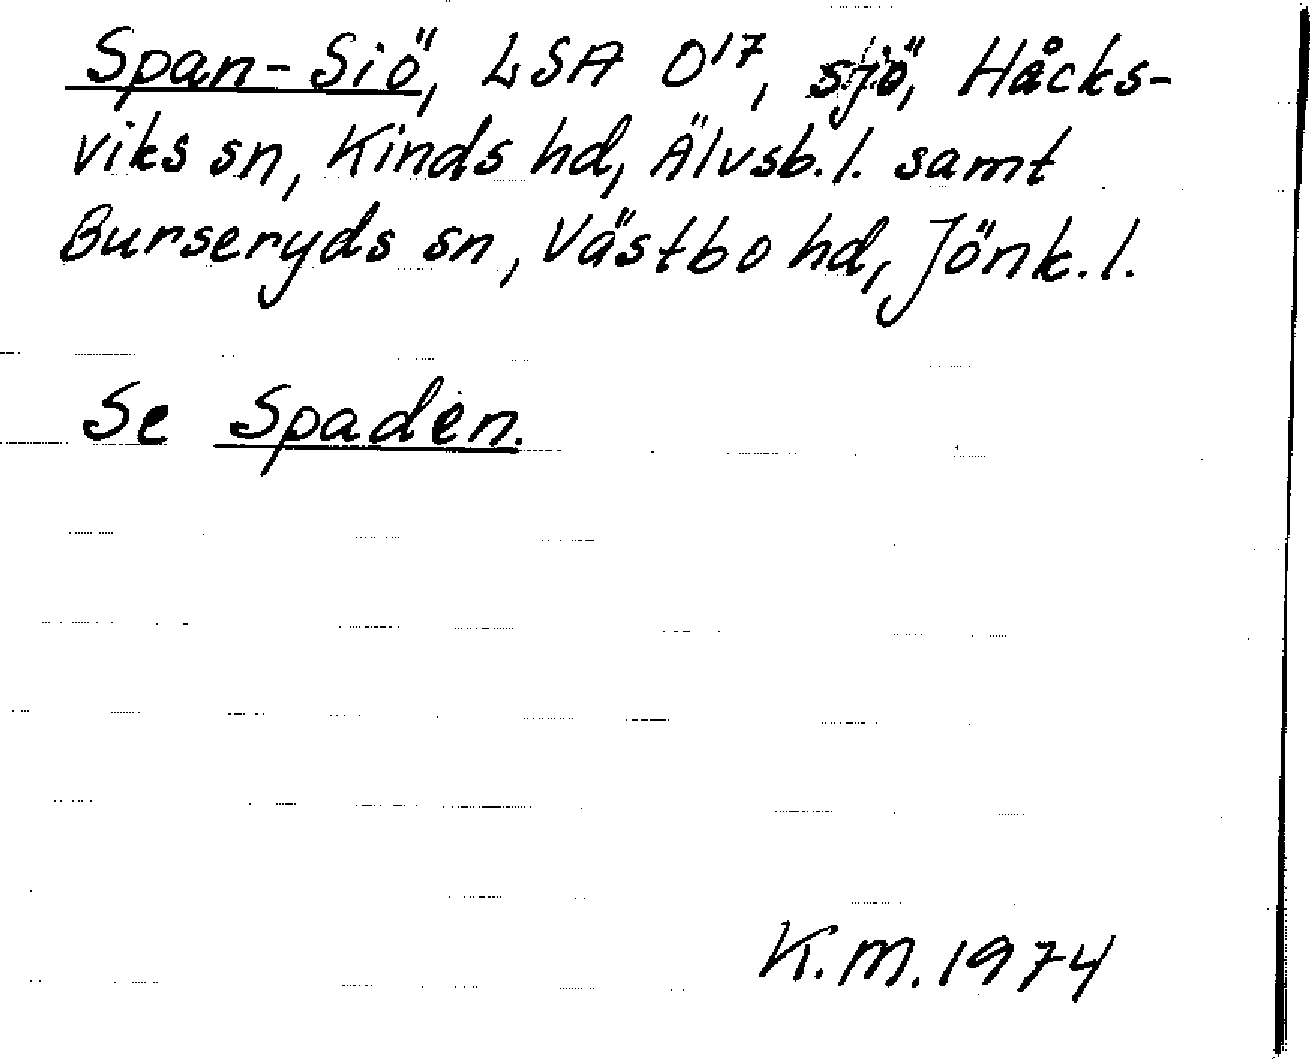 Span-Siö, LSA O17, sjö, Håcks-
viks sn, Kinds hd, Älvsb.l. samt
Burseryds sn, Västbo hd, Jönk.l.
Se Spaden.
K.M.1974